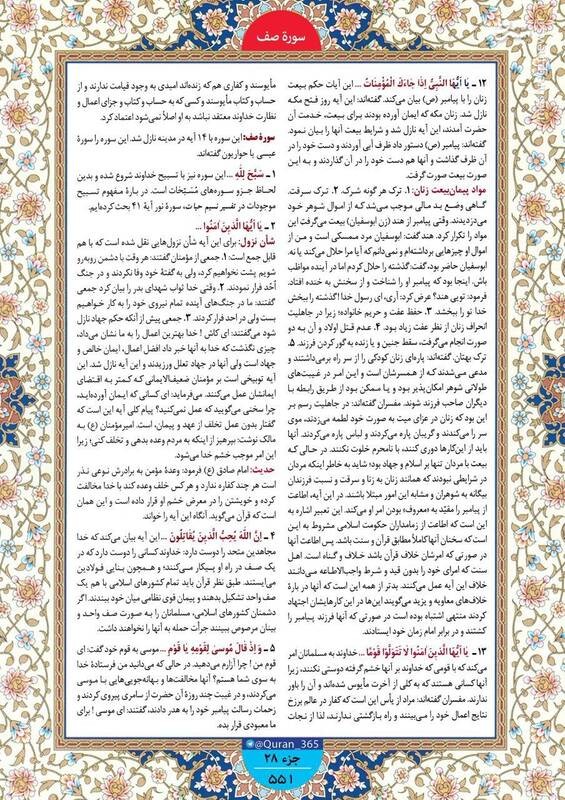 سورة صف
۱۲ ـ یَا أَیُّهَا النَّبِیُّ إِذَا جَاءَكَ الْمُؤْمِنَاتُ ... این آیات حکم بیعت
زنان را با پیامبر (ص) بیان می‌کند. گفته‌اند: این آیه روز فتح مکه
نازل شد. زنان مکه که ایمان آورده بودند برای بیعت، خدمت آن
حضرت آمدند، این آیه نازل شد و شرایط بیعت آنها را بیان نمود.
گفته‌اند: پیامبر (ص) دستور داد ظرف آبی آوردند و دست خود را در
آن ظرف گذاشت و آنها هم دست خود را در آن گذاردند و به این
صورت بیعت صورت گرفت.
مواد پیمان بیعت زنان: ۱. ترک هر گونه شرک. ۲. ترک سرقت.
گاهی وضع بد مالی موجب می‌شد که از اموال شوهر خود
می‌دزدیدند. وقتی پیامبر از هند (زن ابوسفیان) بیعت می‌گرفت این
مواد را تکرار کرد. هند گفت: ابوسفیان مرد ممسکی است و من از
اموال او چیزهایی برداشته‌ام و نمی‌دانم که آیا مرا حلال می‌کند یا نه.
ابوسفیان حاضر بود، گفت: گذشته را حلال کردم اما در آینده مواظب
باش، اینجا بود که پیامبر او را شناخت و از سخنش به خنده افتاد.
فرمود: تویی هند؟ عرض کرد: آری، ای رسول خدا! گذشته را ببخش
خدا تو را ببخشد. ۳. حفظ عفت و حریم خانواده؛ زیرا در جاهلیت
انحراف زنان از نظر عفت زیاد بود. ۴. عدم قتل اولاد و آن به دو
صورت انجام می‌گرفت، سقط جنین و یا زنده به گور کردن فرزند. ۵.
ترک بهتان. گفته‌اند: پاره‌ای زنان کودکی را از سر راه برمی‌داشتند و
مدعی می‌شدند که از همسرشان است و این امر در غیبت‌های
طولانی شوهر امکان‌پذیر بود و یا ممکن بود از طریق رابطه با
دیگران صاحب فرزند شوند. مفسران گفته‌اند: در جاهلیت رسم بر
این بود که زنان در عزای میت به صورت خود لطمه می‌زدند، موی
سر را می‌کندند و گریبان پاره می‌کردند و لباس پاره می‌کردند. آنها
باید از این‌کارها دوری کنند، با نامحرم خلوت نکنند. در حالی که
بیعت با مردان تنها بر اسلام و جهاد بود؛ شاید به خاطر اینکه مردان
در شرایطی نبودند که همانند زنان به زنا و سرقت و نسبت فرزندان
بیگانه به شوهران و مشابه این امور مبتلا باشند. در این آیه، اطاعت
از پیامبر را مقید به «معروف» بودن امر او می‌کند. این تعبیر اشاره به
این است که اطاعت از زمامداران حکومت اسلامی مشروط به این
است که سخنان آنها کاملاً مطابق قرآن و سنت باشد. پس اطاعت آنها
در صورتی که امرشان خلاف قرآن باشد خلاف و گناه است. اهل
سنت که امرای خود را بدون قید و شرط واجب‌الاطاعه می‌دانند
خلاف این آیه عمل می‌کنند. بدتر از همه این است که آنها در بارۀ
خلاف‌های معاویه و یزید می‌گویند این‌ها در این کارهایشان اجتهاد
کردند منتهی اشتباه بوده است در صورتی که آنها فرزند پیامبر را
کشتند و در برابر امام زمان خود ایستادند.
۱۳ ـ یَا أَیُّهَا الَّذِینَ آمَنُوا لَا تَتَوَلَّوْا قَوْمًا ... خداوند به مسلمانان امر
می‌کند که با قومی که خداوند بر آنها خشم گرفته دوستی نکنند، زیرا
آنها کسانی هستند که به کلی از آخرت مأیوس شده‌اند و آن را باور
ندارند. مفسران گفته‌اند: مراد از یأس این است که کفار در عالم برزخ
نتایج اعمال خود را می‌بینند و راه بازگشتی ندارند، لذا از نجات
مأیوسند و کفاری هم که زنده‌اند امیدی به وجود قیامت ندارند و از
حساب و کتاب مأیوسند و کسی که به حساب و کتاب و جزای اعمال و
نظارت خداوند معتقد نباشد به او اصلاً نمی‌شود اعتماد کرد.
سورۀ صف: این سوره با ۱۴ آیه در مدینه نازل شد. این سوره را سورۀ
عیسی یا حواریون گفته‌اند.
۱ ـ سَبَّحَ لِلَّهِ ... این سوره نیز با تسبیح خداوند شروع شده و بدین
لحاظ جزو سوره‌های مُسَبِّحات است. در بارۀ مفهوم تسبیح
موجودات در تفسیر نسیم حیات، سورۀ نور آیۀ ۴۱ بحث کرده‌ایم.
۲ ـ یَا أَیُّهَا الَّذِینَ آمَنُوا ...
شأن نزول: برای این آیه شأن نزول‌هایی نقل شده است که با هم
قابل جمع است؛ ۱. جمعی از مؤمنان گفتند: هر وقت با دشمن روبه‌رو
شویم پشت نخواهیم کرد، ولی به گفتۀ خود وفا نکردند و در جنگ
اُحُد فرار نمودند. ۲. وقتی خدا ثواب شهدای بدر را بیان کرد جمعی
گفتند: ما در جنگ‌های آینده تمام نیروی خود را به کار خواهیم
بست ولی در احد فرار کردند. ۳. جمعی پیش از آنکه حکم جهاد نازل
شود می‌گفتند: ای کاش! خدا بهترین اعمال را به ما نشان می‌داد،
چیزی نگذشت که خدا به آنها خبر داد افضل اعمال، ایمان خالص و
جهاد است ولی آنها در جهاد تعلل ورزیدند و این آیه نازل شد. این
آیه توبیخی است بر مؤمنان ضعیف‌الایمانی که کمتر به اقتضای
ایمانشان عمل می‌کنند. می‌فرماید: ای کسانی که ایمان آورده‌اید،
چرا سخنی می‌گویید که عمل نمی‌کنید؟ پیام کلی آیه این است که
گفتار بدون عمل تخلف از عهد و پیمان، است. امیرمؤمنان (ع) به
مالک نوشت: بپرهیز از اینکه به مردم وعده بدهی و تخلف کنی؛ زیرا
این امر موجب خشم خدا می‌شود.
حدیث: امام صادق (ع) فرمود: وعدۀ مؤمن به برادرش نوعی نذر
است هر چند کفاره ندارد و هر کس خلف وعده کند با خدا مخالفت
کرده و خویشتن را در معرض خشم او قرار داده است و این همان
است که قرآن می‌گوید. آنگاه این آیه را خواند.
۴ ـ إِنَّ اللَّهَ یُحِبُّ الَّذِینَ یُقَاتِلُونَ ... این آیه بیان می‌کند که خدا
مجاهدین متحد را دوست دارد: خداوند کسانی را دوست دارد که در
یک صف در راه او پیکار می‌کنند؛ و همچون بنایی فولادین
می‌ایستند. طبق نظر قرآن باید تمام کشورهای اسلامی با هم یک
صف واحد تشکیل بدهند و پیمان قوی نظامی میان خود ببندند. اگر
دشمنان کشورهای اسلامی، مسلمانان را به صورت صف واحد و
بنیان مرصوص ببینند جرأت حمله به آنها را نخواهند داشت.
۵ ـ وَ إِذْ قَالَ مُوسَىٰ لِقَوْمِهِ یَا قَوْمِ ... موسی به قوم خود گفت: ای
قوم من! چرا آزارم می‌دهید. در حالی که می‌دانید من فرستادۀ خدا
به سوی شما هستم؟ آنها مخالفت‌ها و بهانه‌جویی‌هایی با موسی
می‌کردند، و در غیبت چند روزۀ آن حضرت از سامری پیروی کردند و
زحمات رسالت پیامبر خود را به هدر دادند، گفتند: ای موسی! برای
ما معبودی قرار بده.
@Quran_365
جزء ۲۸
۵۵۱